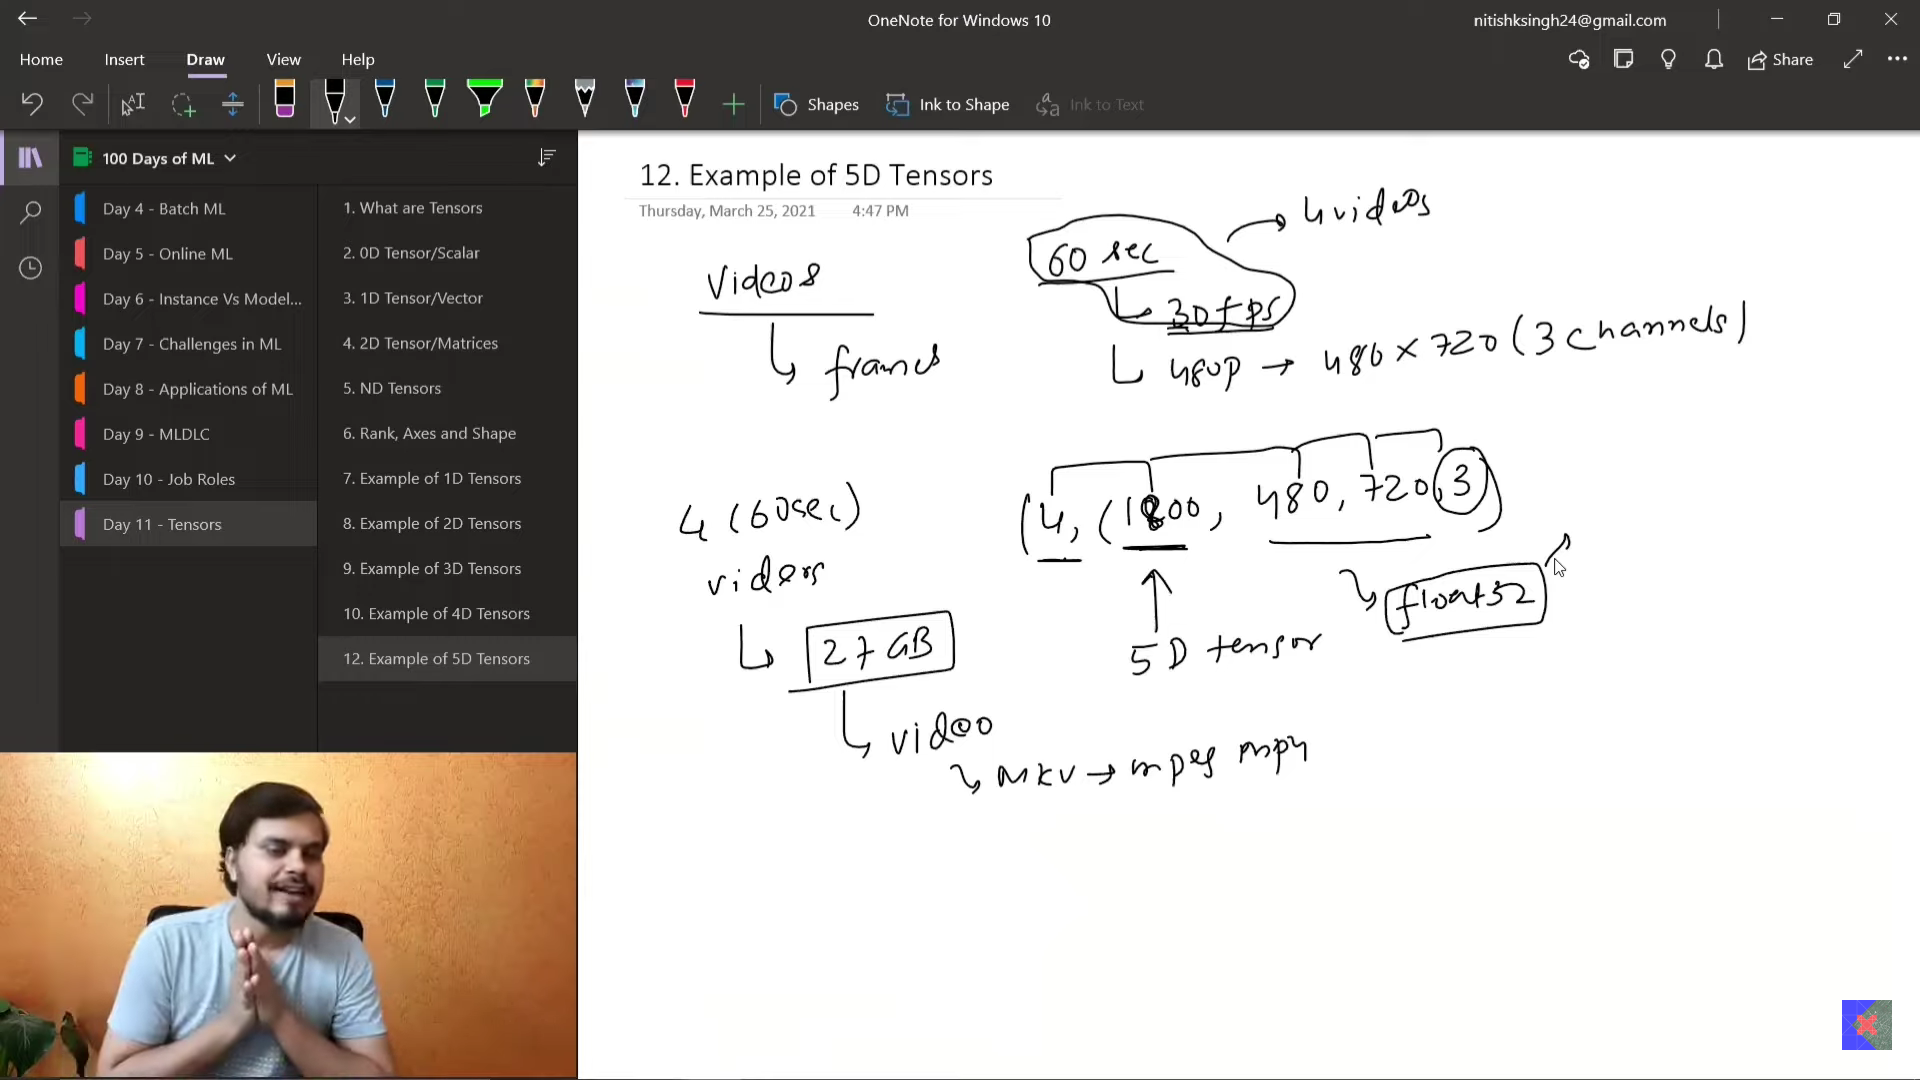 OneNote for Windows 10
nitishksingh24@gmail.com
Home Insert Draw View Help
Share
Shapes Ink to Shape Ink to Text
100 Days of ML
Day 4 - Batch ML
Day 5 - Online ML
Day 6 - Instance Vs Model...
Day 7 - Challenges in ML
Day 8 - Applications of ML
Day 9 - MLDLC
Day 10 - Job Roles
Day 11 - Tensors
1. What are Tensors
2. 0D Tensor/Scalar
3. 1D Tensor/Vector
4. 2D Tensor/Matrices
5. ND Tensors
6. Rank, Axes and Shape
7. Example of 1D Tensors
8. Example of 2D Tensors
9. Example of 3D Tensors
10. Example of 4D Tensors
12. Example of 5D Tensors
12. Example of 5D Tensors
Thursday, March 25, 2021 4:47 PM
Videos
frames
60 sec
30fps
4 videos
480p → 480 × 720 (3 channels)
4 (60sec)
videos
27 GB
video
mkv → mpeg mp4
(4, (1800, 480, 720, 3)
5D tensor
float32